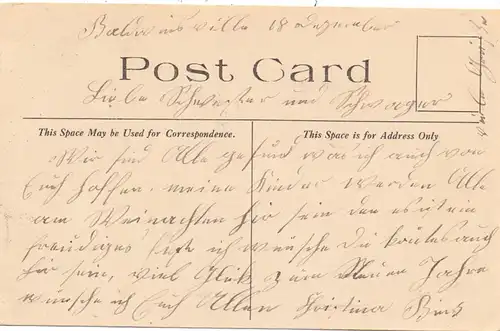 Baldwinsville 18 Dezember
Post Card
Liebe Schwester und Schwager
This Space May be Used for Correspondence.
This Space is for Address Only
Wir sind Alle gesund was ich auch von
Euch hoffen. meine Kinder werden Alle
am Weinachten hir sein den es ist ein
freudiges ich wünsche Du auch
hir sein, viel Glük zum Neuen Jahre
wünsche ich Euch Allen Christina